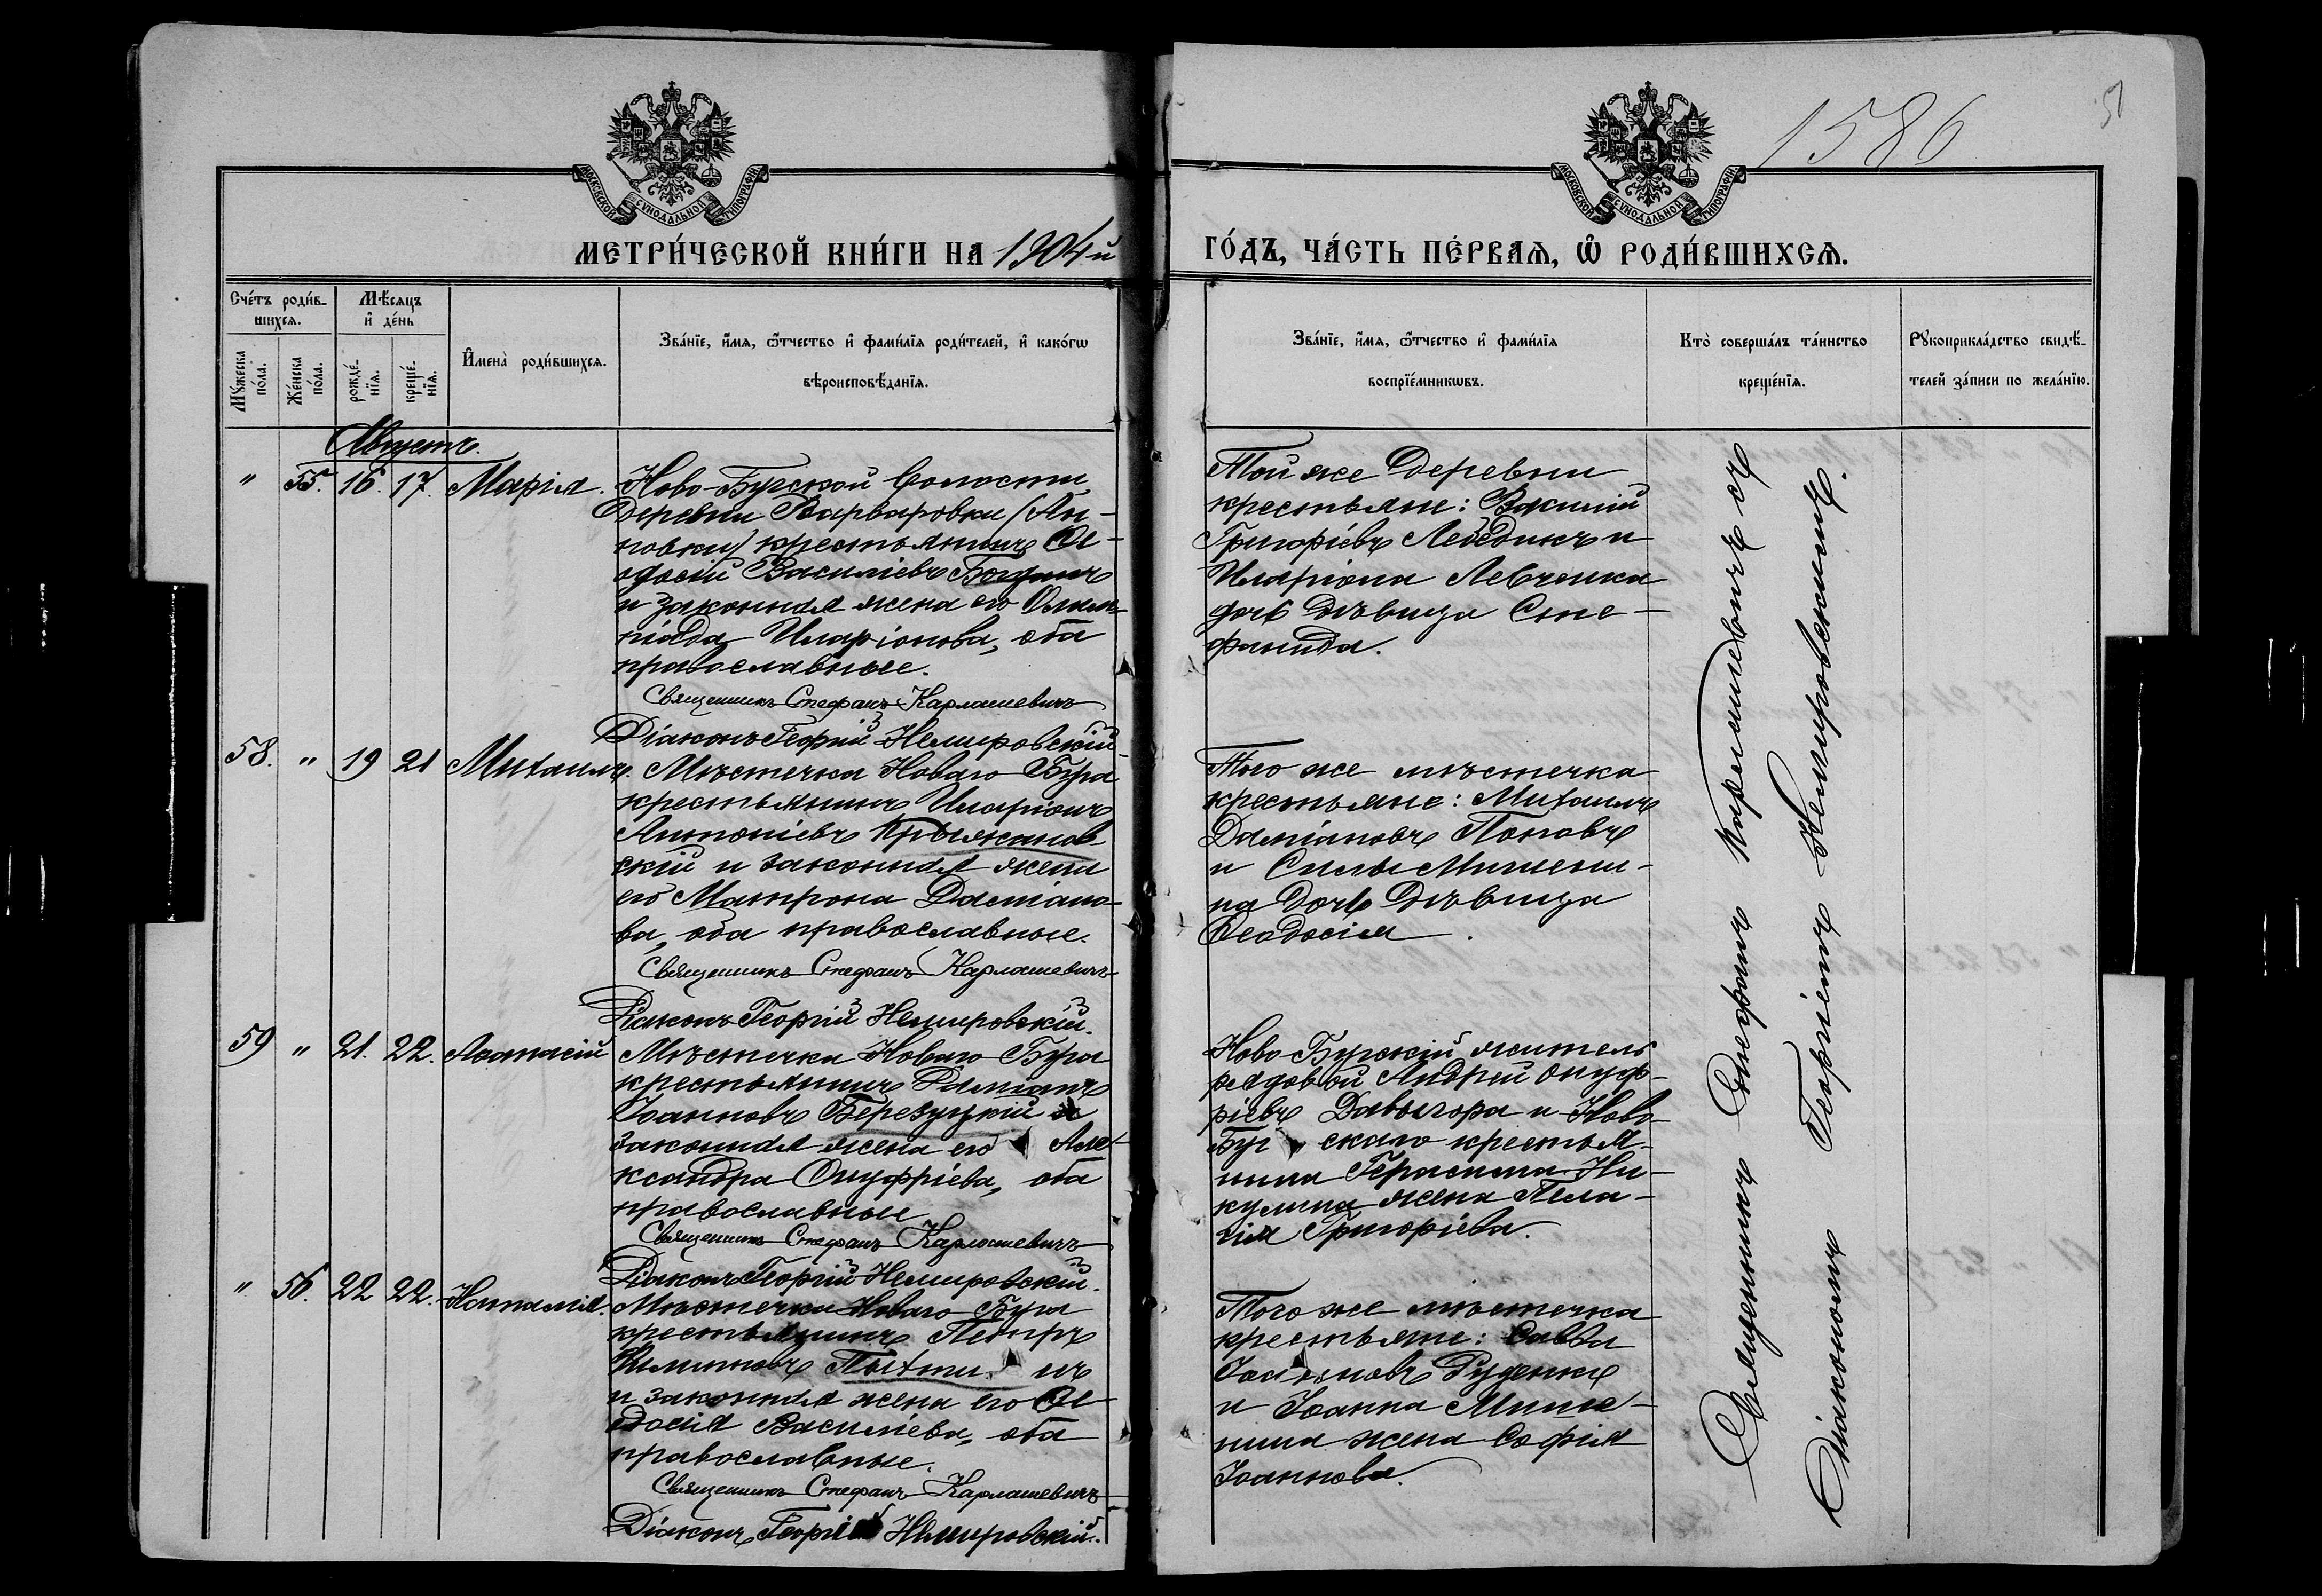 1586
51
МОСКОВСКОЙ СУНОДАЛЬНОЙ ТИПОГРАФІИ
МОСКОВСКОЙ СУНОДАЛЬНОЙ ТИПОГРАФІИ
МЕТРИ́ЧЕСКОЙ КНИ́ГИ НА 1904й
ГО́ДЪ, ЧА́СТЬ ПЕ́РВАѦ, Ѡ҆ РОДИ́ВШИХСѦ.
Сче́тъ роди́в-
шихсѧ.
Мꙋ́жеска по́ла.
Же́нска по́ла.
Мѣ́сѧцъ
и҆ де́нь
рожде́-
нїѧ.
креще́-
нїѧ.
И҆мена̀ роди́вшихсѧ.
Зва́нїе, и҆́мѧ, ѻ҆́тчество и҆ фами́лїѧ роди́телей, и҆ како́гѡ
вѣроисповѣ́данїѧ.
Зва́нїе, и҆́мѧ, ѻ҆́тчество и҆ фами́лїѧ
воспрїе́мникѡвъ.
Кто̀ соверша́лъ та́инство
креще́нїѧ.
Рꙋкоприкла́дство свидѣ́-
телей за́писи по жела́нїю.
Августъ.
" 55. 16. 17. Марія.
Ново-Бугской волости
деревни Варваровки (Ан-
новки) крестьянинъ Ѳе-
одосій Василіевъ Богданъ
и законная жена его Олим-
піада Иларіонова, оба
православные.
Священникъ Стефанъ Карлашевичъ
Діаконъ Георгій Немировскій
Той же деревни
крестьяне: Василій
Григоріевъ Лебедикъ и
Иларіона Левченка
дочь дѣвица Сте-
фанида.
58. " 19 21 Михаилъ.
Мѣстечка Новаго Буга
крестьянинъ Иларіонъ
Антоніевъ Крыжанов-
скій и законная жена
его Матрона Даміано-
ва, оба православные.
Священникъ Стефанъ Карлашевичъ
Діаконъ Георгій Немировскій.
Того же мѣстечка
крестьяне: Михаилъ
Даміановъ Поповъ
и Силы Мишени-
на дочь дѣвица
Ѳеодосія.
59 " 21. 22. Аѳанасій
Мѣстечка Новаго Буга
крестьянинъ Даміанъ
Іоанновъ Березуцкій и
законная жена его Але-
ксандра Онуфріева, оба
православные
Священникъ Стефанъ Карлашевичъ
Діаконъ Георгій Немировскій.
Ново-Бугскій житель
рядовой Андрей Онуф-
ріевъ Давыгора и Ново-
Бугскаго крестья-
нина Герасима Ни-
кулина жена Пела-
гія Григоріева.
" 56. 22 22. Наталія.
Мѣстечка Новаго Буга
крестьянинъ Петръ
и законная жена его Ѳе-
досія Василіева, оба
православные.
Священникъ Стефанъ Карлашевичъ
Діаконъ Георгій Немировскій.
Того же мѣстечка
крестьяне: Савва
Руденко
и Іоанна Мише-
нина жена Софія
Іоаннова.
Священникъ Стефанъ Карлашевичъ съ
Діакономъ Георгіемъ Немировскимъ.